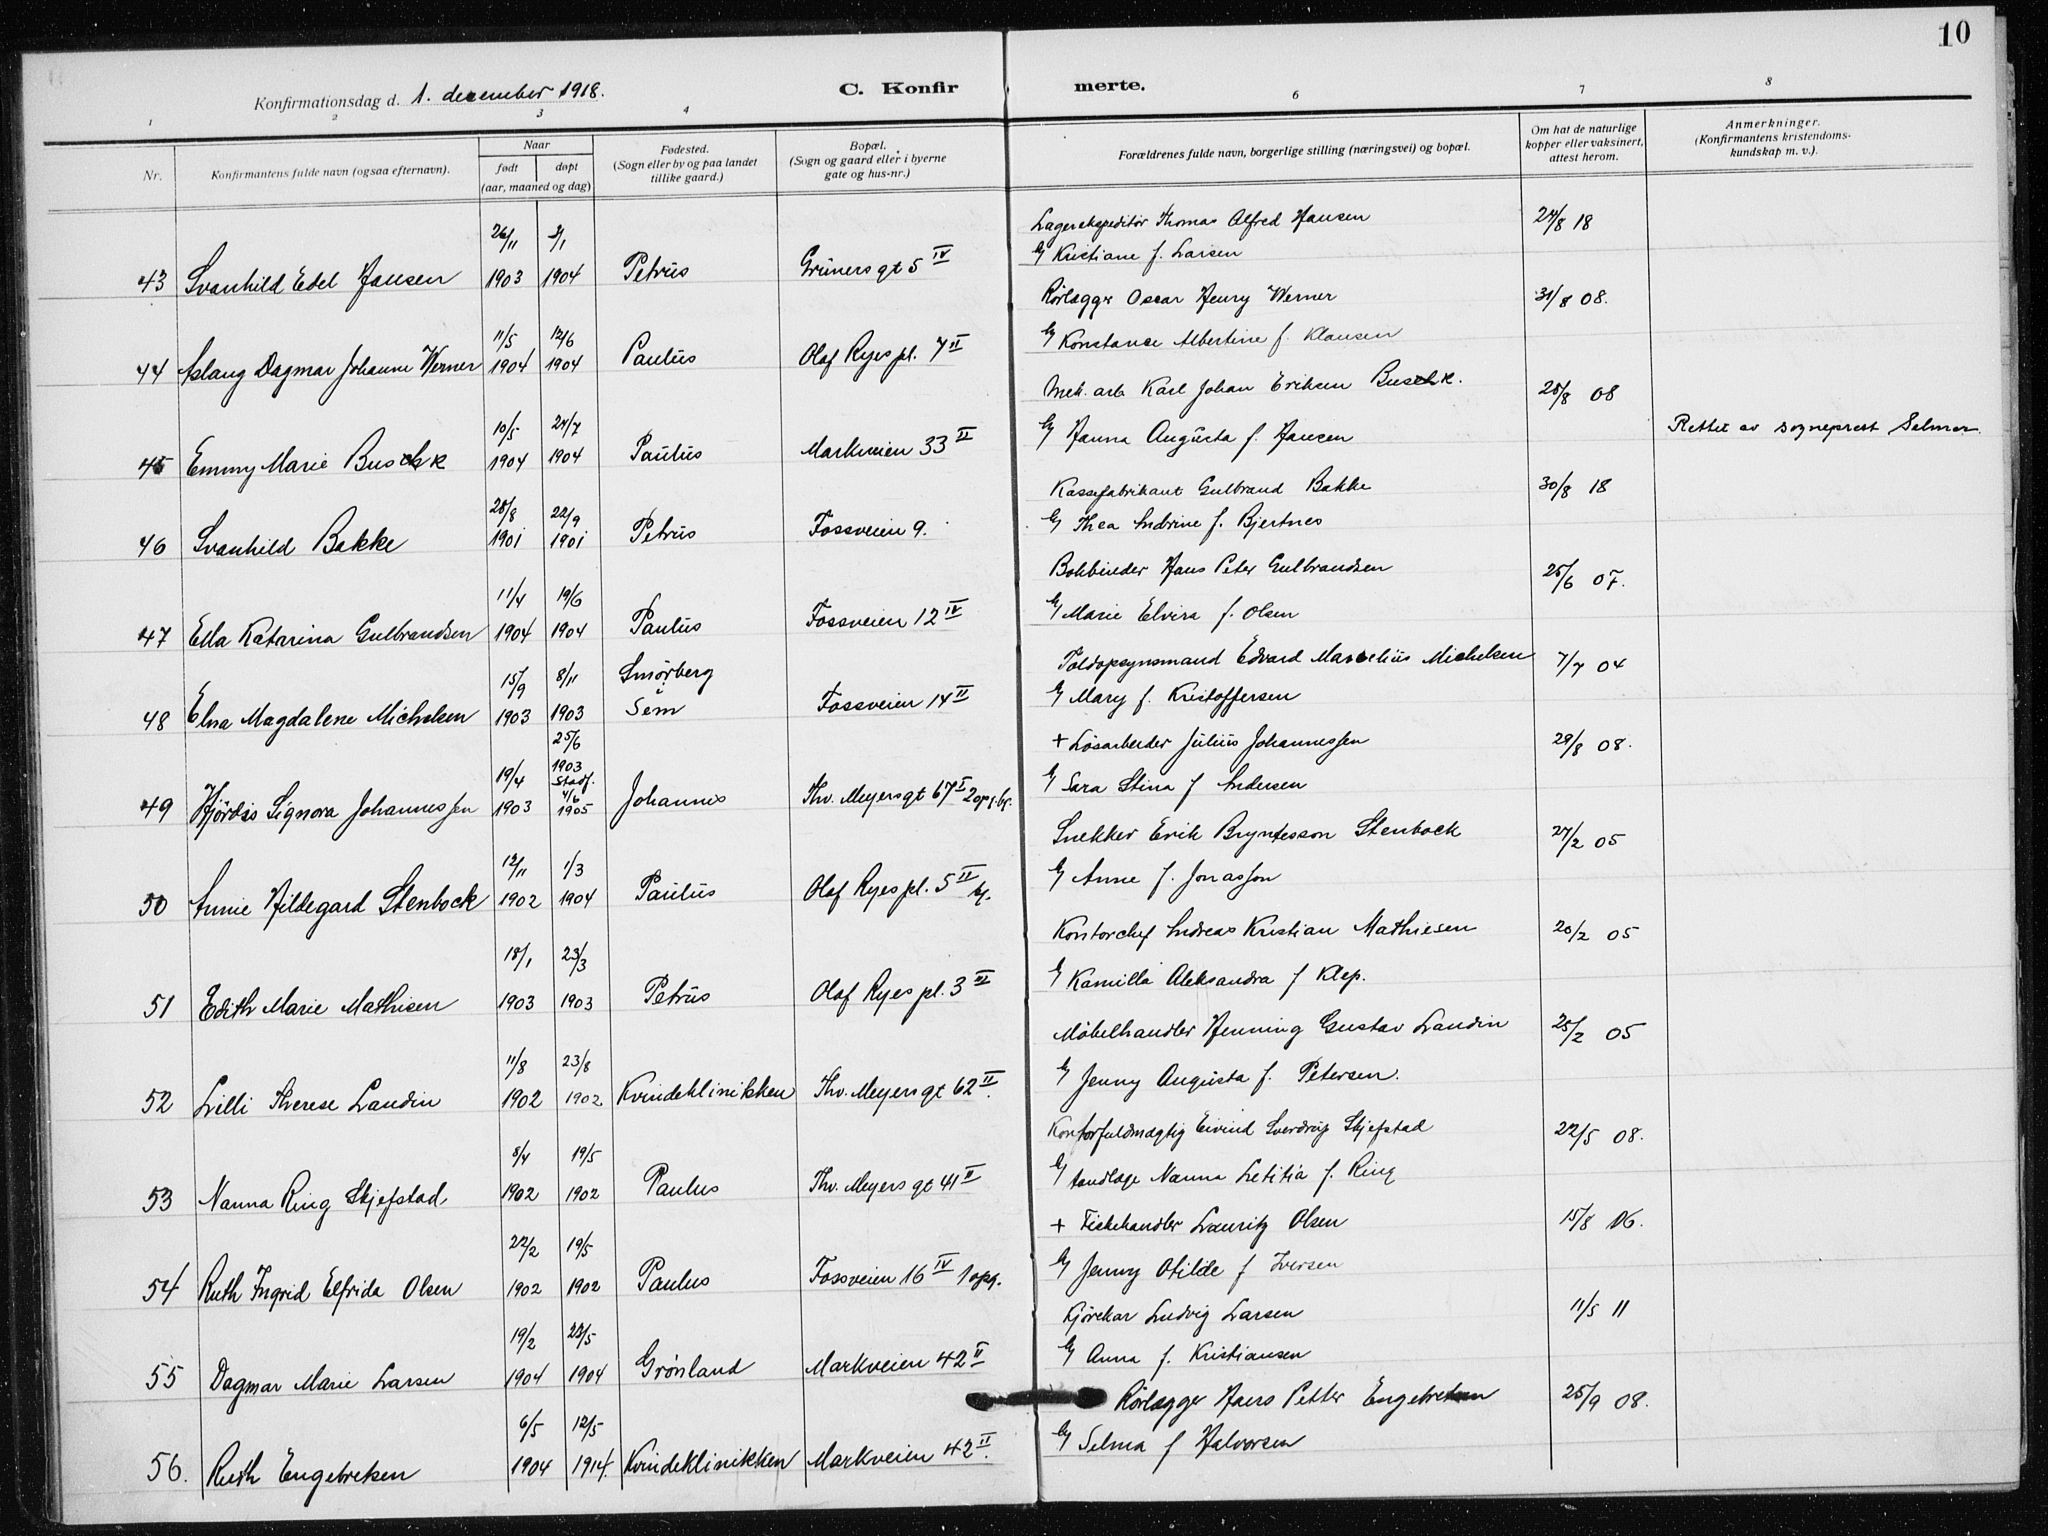 10
Konfirmationsdag d. 1. december 1918.
C. Konfir merte.
1 2 3 4 6 7 8
Nr.
Konfirmantens fulde navn (ogsaa efternavn).
Naar
født døpt
(aar, maaned og dag)
Fødested.
(Sogn eller by og paa landet
tillike gaard.)
Bopæl.
(Sogn og gaard eller i byerne
gate og hus-nr.)
Forældrenes fulde navn, borgerlige stilling (næringsvei) og bopæl.
Om hat de naturlige
kopper eller vaksinert,
attest herom.
Anmerkninger.
(Konfirmantens kristendoms-
kundskap m. v.).
26/11 3/1 Lagerekspeditør Thomas Alfred Hansen 24/8 18
43 Svanhild Edel Hansen 1903 1904 Petrus Grüners gt 5 IV Eg Kristiane f. Larsen
11/5 12/6 Rørlægger Oscar Henry Werner 31/8 08.
44 Aslaug Dagmar Johanne Werner 1904 1904 Paulus Olaf Ryes pl. 7 II Eg Konstance Albertine f. Klausen
10/5 24/7 Mek. arb. Karl Johan Eriksen Buschk. 25/8 08
45 Emmy Marie Buschk 1904 1904 Paulus Markveien 33 II Eg Hanna Augusta f. Hansen Rettet av sogneprest Selmer
28/8 22/9 Kassefabrikant Gulbrand Bakke 30/8 18
46 Svanhild Bakke 1901 1901 Petrus Fossveien 9. Eg Thea Andrine f. Bjertnes
11/4 19/6 Bokbinder Hans Peter Gulbrandsen 25/6 07.
47 Ella Katarina Gulbrandsen 1904 1904 Paulus Fossveien 12 IV Eg Marie Elvira f. Olsen
15/9 8/11 Smørberg i Toldopsynsmand Edvard Marcelius Michelsen 7/7 04
48 Elna Magdalene Michelsen 1903 1903 Sem Fossveien 14 II Eg Mary f. Kristoffersen
19/4 25/6 1903 Stadf. 4/6 + Løsarbeider Julius Johannessen 29/8 08.
49 Hjørdis Signora Johannessen 1903 1905 Johannes Thv. Meyers gt 67 I 2 opg. bg. Eg Sara Stina f Andersen
12/11 1/3 Snekker Erik Bryntesson Stenbock 27/2 05
50 Annie Hildegard Stenbock 1902 1904 Paulus Olaf Ryes pl. 5 II bg. Eg Anne f. Jonasson
18/1 23/3 Kontorchef Andreas Kristian Mathiesen 20/2 05
51 Edith Marie Mathisen 1903 1903 Petrus Olaf Ryes pl. 3 III Eg Kamilla Aleksandra f Klep.
11/8 23/8 Møbelhandler Henning Gustav Landin 25/2 05
52 Lilli Therese Landin 1902 1902 Kvindeklinikken Thv. Meyers gt 62 II. Eg Jenny Augusta f. Petersen.
8/4 19/5 Kontorfuldmægtig Eivind Sverdrup Skjefstad 22/5 08.
53 Nanna Ring Skjefstad 1902 1902 Paulus Thv. Meyers gt 41 II Eg tandlæge Nanna Letitia f. Ring
22/2 19/5 + Fiskehandler Lauritz Olsen 15/8 06.
54 Ruth Ingrid Elfrida Olsen 1902 1902 Paulus Fossveien 16 IV 1 opg. Eg Jenny Otilde f Iversen
19/2 22/5 Kjørekar Ludvig Larsen 11/5 11
55 Dagmar Marie Larsen 1904 1904 Grønland Markveien 42 II Eg Anna f. Kristiansen
6/5 12/5 Rørlægger Hans Petter Engebretsen 25/9 08.
56. Ruth Engebretsen 1904 1914. Kvindeklinikken Markveien 42 II. Eg Selma f Halvorsen